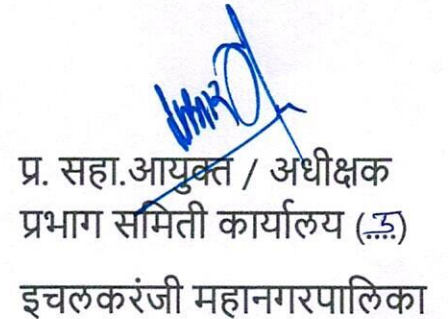 प्र. सहा.आयुक्त / अधीक्षक
प्रभाग समिती कार्यालय (ड)
इचलकरंजी महानगरपालिका